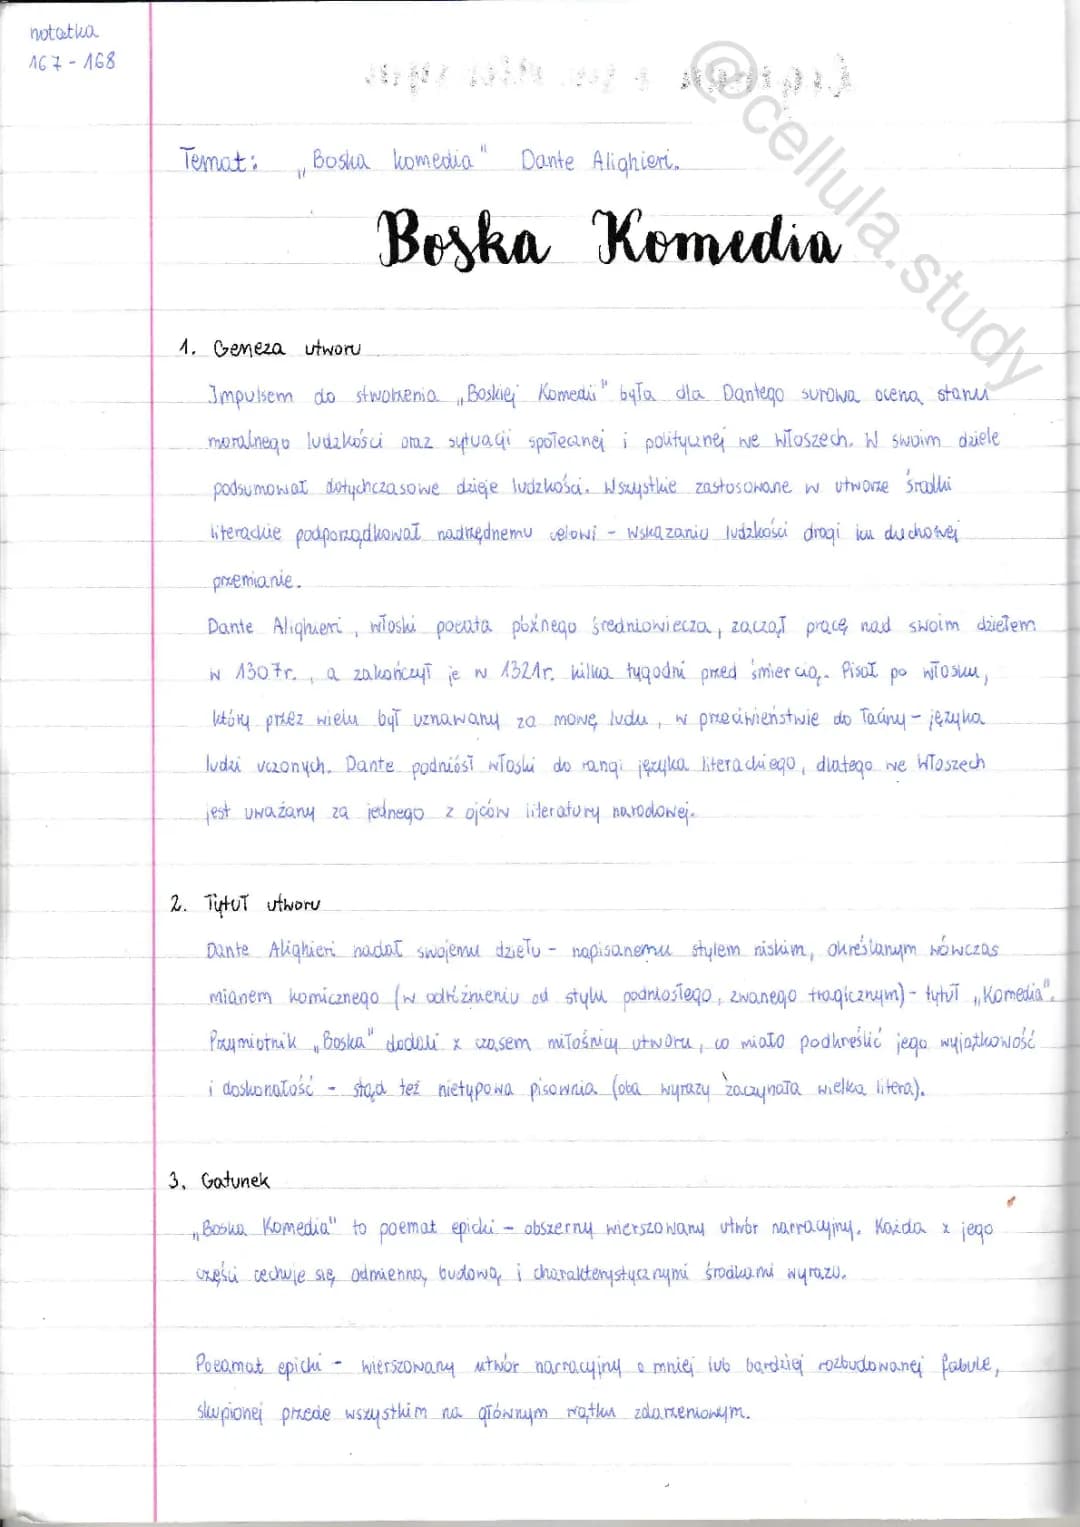 notatka
167 - 168
@cellula.study
Temat: „Boska komedia" Dante Alighieri.
Boska Komedia
1. Geneza utworu
Impulsem do stworzenia „Boskiej Komedii" była dla Dantego surowa ocena stanu
moralnego ludzkości oraz sytuacji społecznej i politycznej we Włoszech. W swoim dziele
podsumował dotychczasowe dzieje ludzkości. Wszystkie zastosowane w utworze środki
literackie podporządkował nadrzędnemu celowi - wskazaniu ludzkości drogi ku duchowej
przemianie.
Dante Alighieri, włoski poeta późnego średniowiecza, zaczął pracę nad swoim dziełem
w 1307r., a zakończył je w 1321r. kilka tygodni przed śmiercią. Pisał po włosku,
który przez wielu był uznawany za mowę ludu, w przeciwieństwie do łaciny - języka
ludzi uczonych. Dante podniósł włoski do rangi języka literackiego, dlatego we Włoszech
jest uważany za jednego z ojców literatury narodowej.
2. Tytuł utworu
Dante Alighieri nadał swojemu dziełu - napisanemu stylem niskim, określanym wówczas
mianem komicznego (w odróżnieniu od stylu podniosłego, zwanego tragicznym) - tytuł „Komedia".
Przymiotnik „Boska" dodali z czasem miłośnicy utworu, co miało podkreślić jego wyjątkowość
i doskonałość - stąd też nietypowa pisownia (oba wyrazy zaczynała wielka litera).
3. Gatunek
„Boska Komedia" to poemat epicki - obszerny wierszowany utwór narracyjny. Każda z jego
części cechuje się odmienną budową i charakterystycznymi środkami wyrazu.
Poeamat epicki - wierszowany utwór narracyjny o mniej lub bardziej rozbudowanej fabule,
skupionej przede wszystkim na głównym wątku zdarzeniowym.